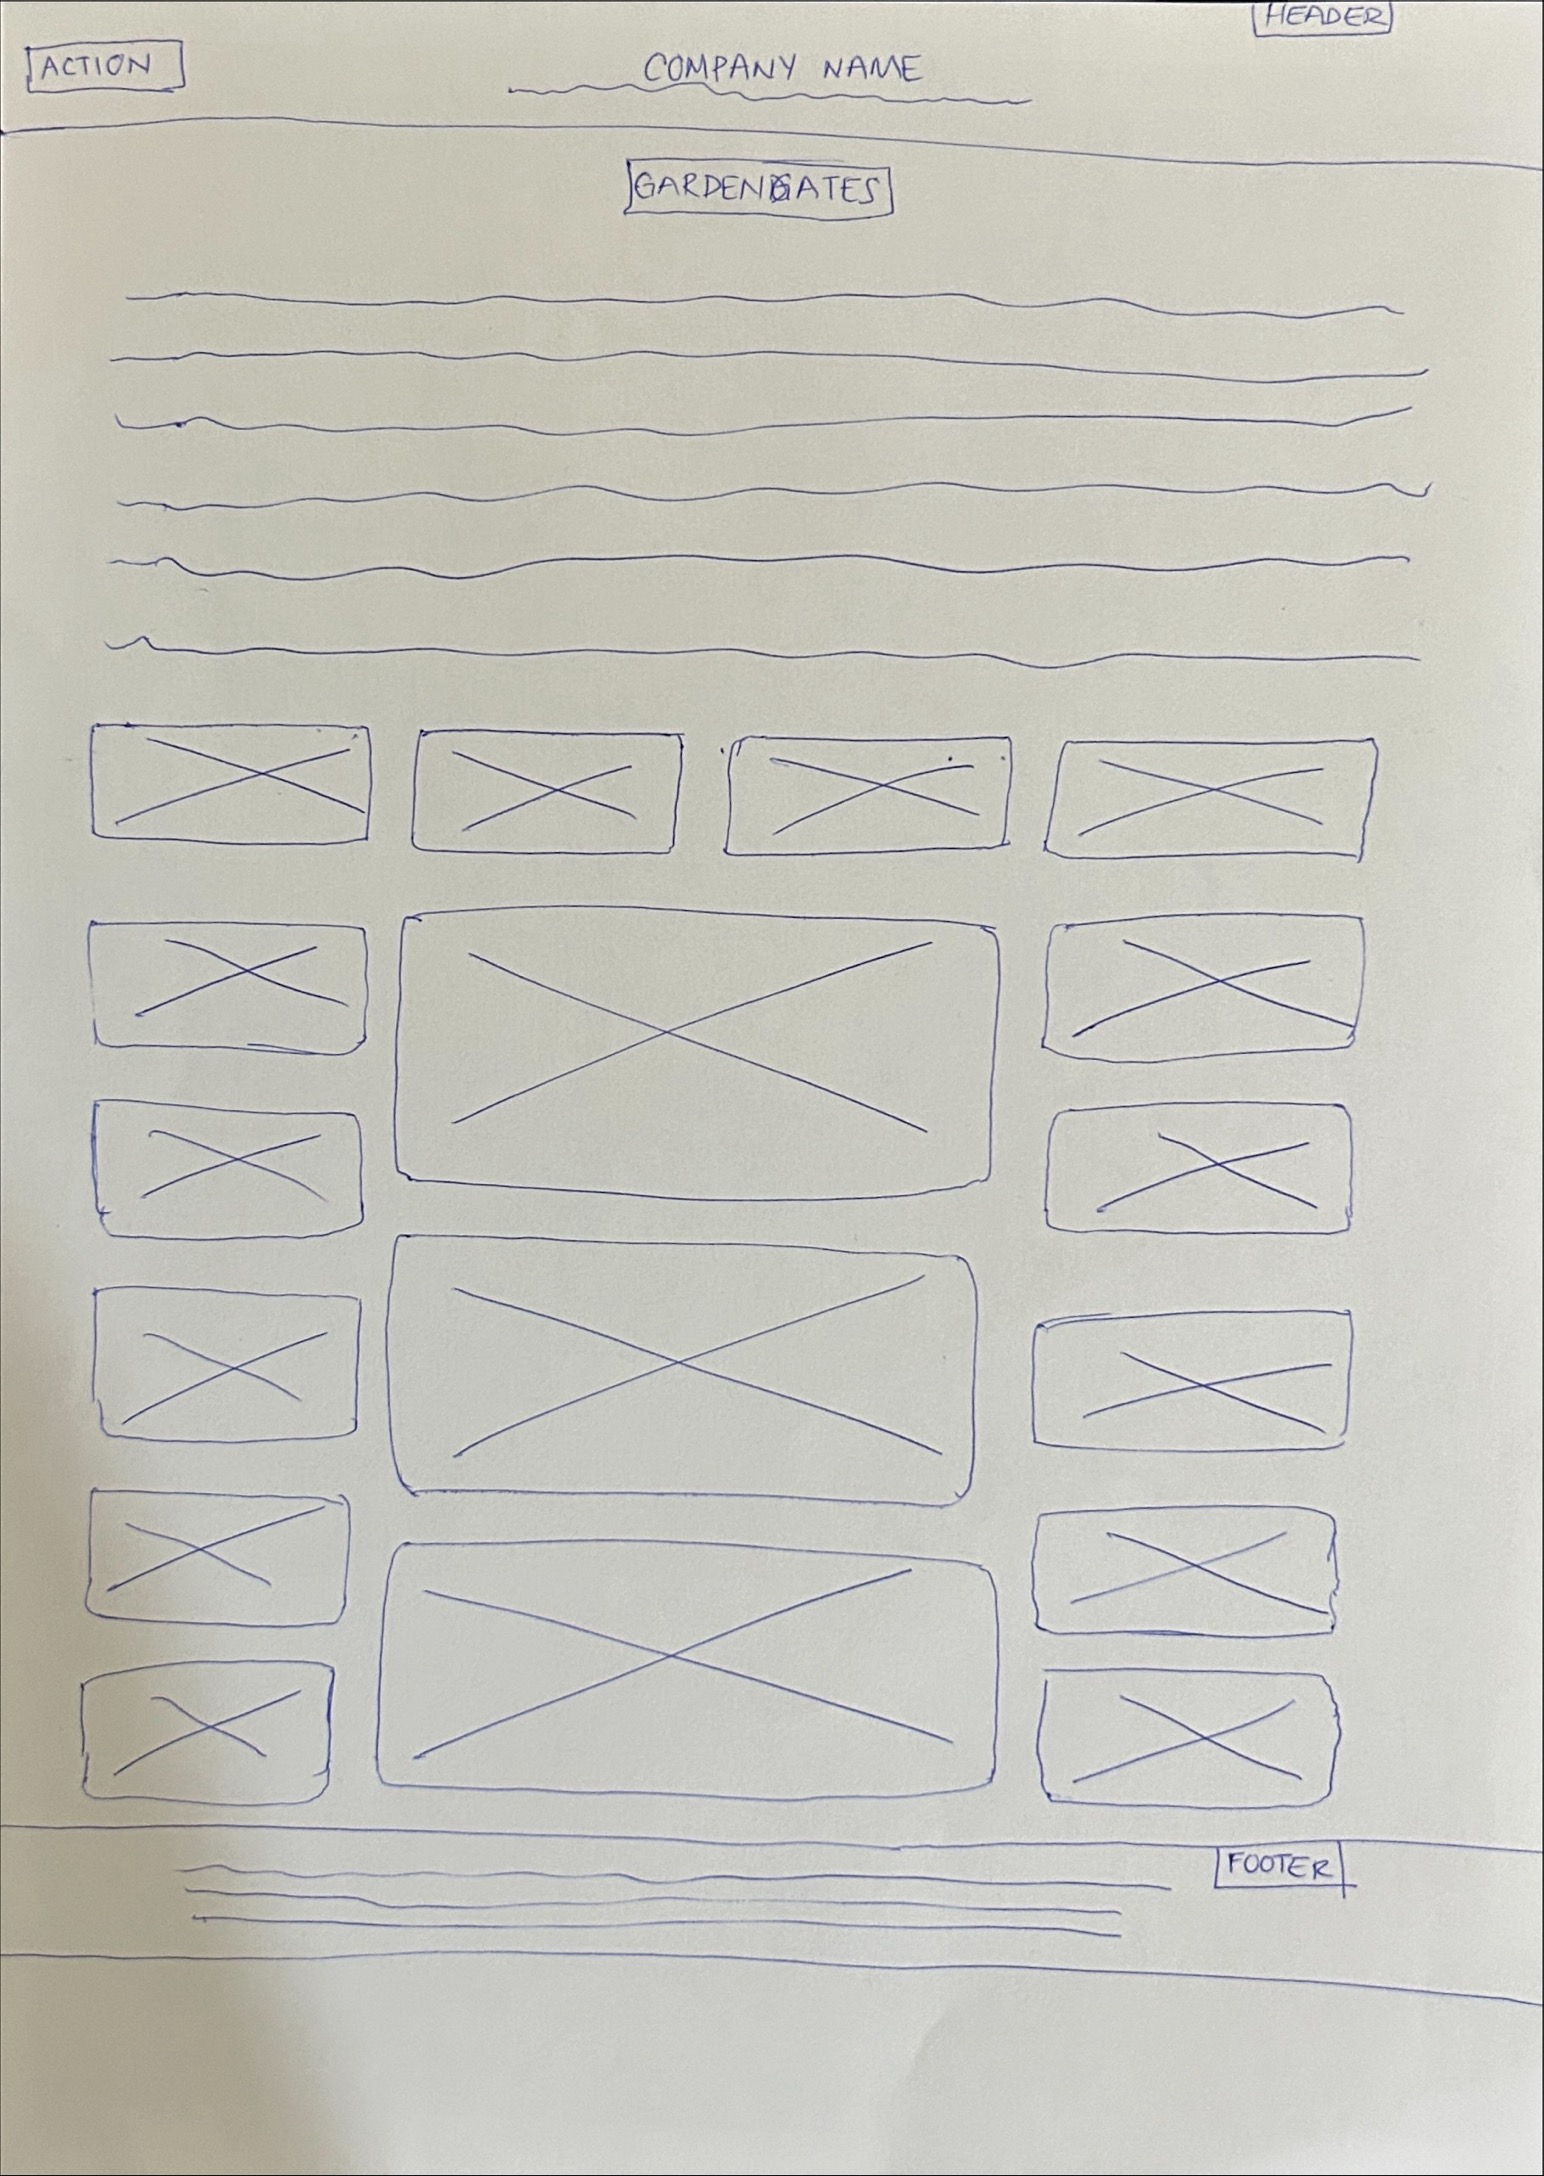 HEADER
ACTION
COMPANY NAME
GARDENGATES
FOOTER